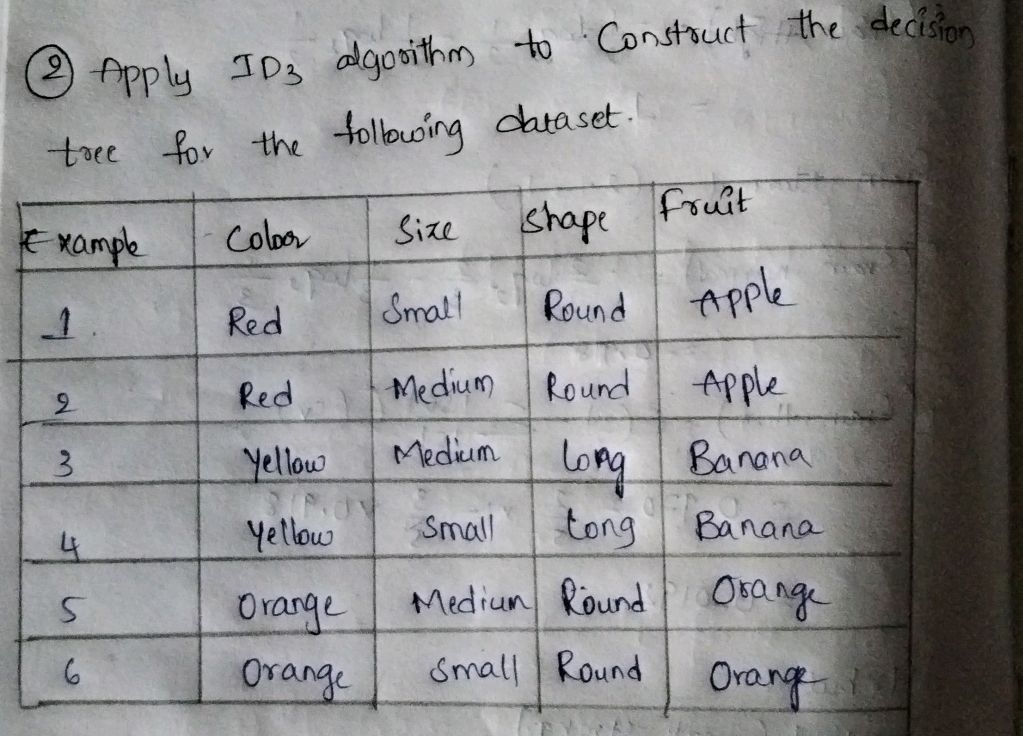 ② Apply ID3 algorithm to Construct the decision
tree for the following dataset.
Example Colour Size Shape Fruit
1. Red Small Round Apple
2 Red Medium Round Apple
3 Yellow Medium Long Banana
4 Yellow Small Long Banana
5 Orange Medium Round Orange
6 Orange Small Round Orange